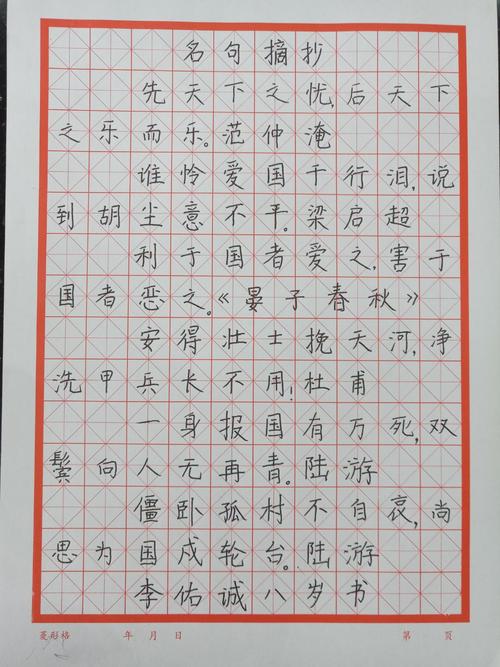 名句摘抄
先天下之忧,后天下
之乐而乐。范仲淹
谁怜爱国千行泪,说
到胡尘意不平。梁启超
利于国者爱之,害于
国者恶之。《晏子春秋》
安得壮士挽天河,净
洗甲兵长不用!杜甫
一身报国有万死,双
鬓向人无再青。陆游
僵卧孤村不自哀,尚
思为国戍轮台。陆游
李佑诚八岁书
菱形格 年 月 日 第 页